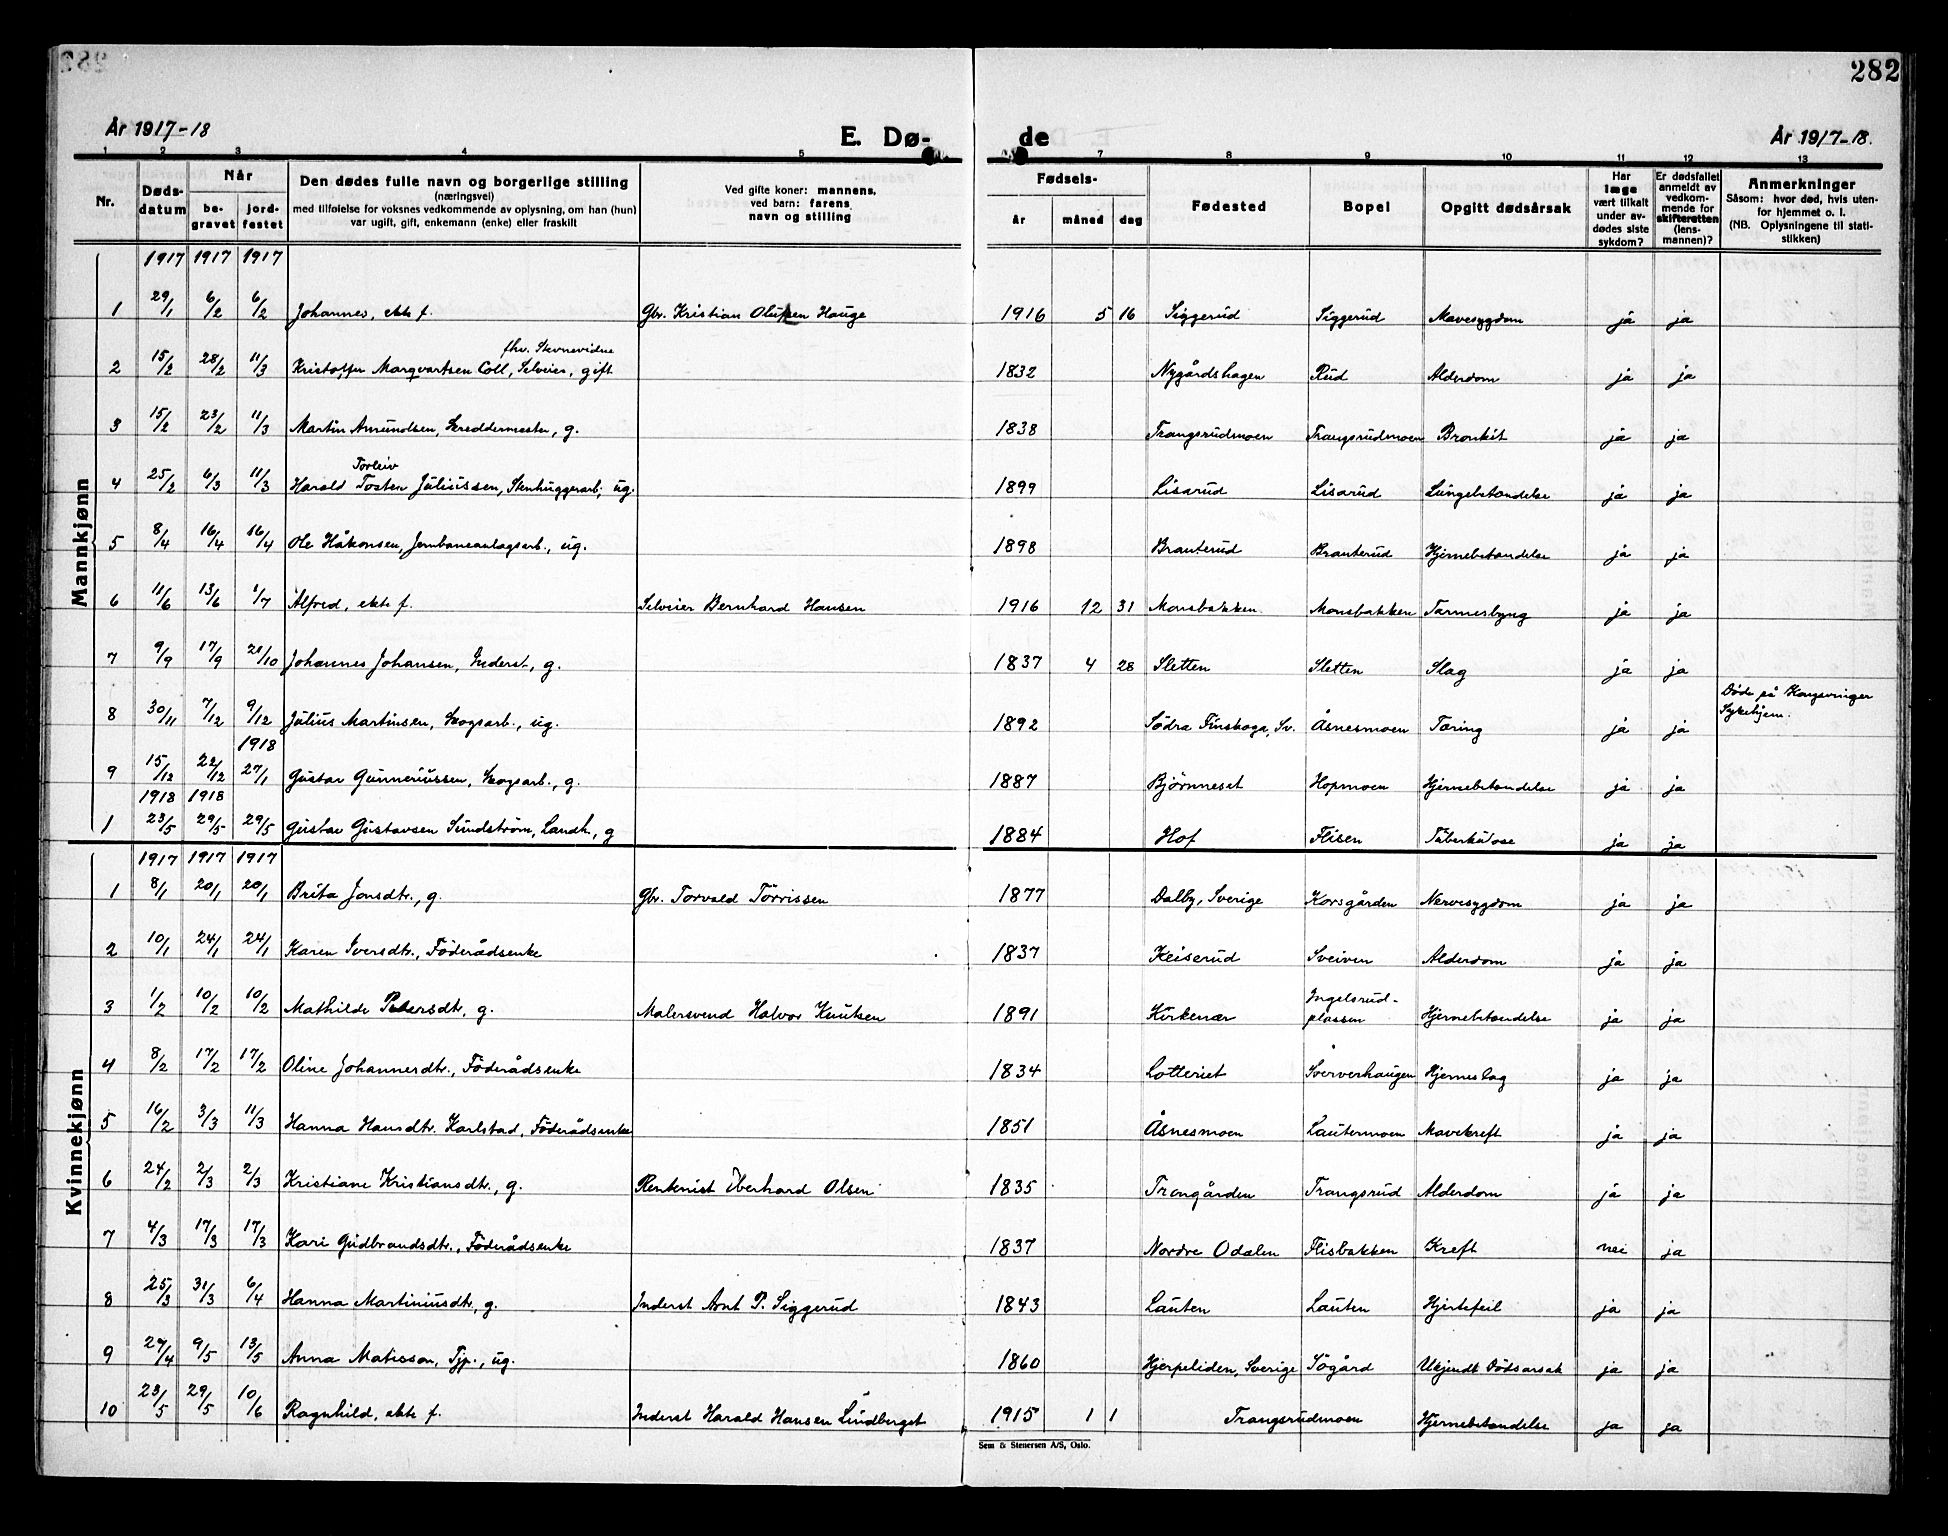 282
År 1917-18 E. Dø- de År 1917-18.
1 2 3 4 5 7 8 9 10 11 12 13
Nr. Døds-datum Når be-gravet jord-festet Den dødes fulle navn og borgerlige stilling (næringsvei) med tilføielse for voksnes vedkommende av oplysning, om han (hun) var ugift, gift, enkemann (enke) eller fraskilt Ved gifte koner: mannens, ved barn: farens navn og stilling Fødsels- år måned dag Fødested Bopel Opgitt dødsårsak Har læge vært tilkalt under av-dødes siste sykdom? Er dødsfallet anmeldt av vedkom-mende for skifteretten (lens-mannen)? Anmerkninger Såsom: hvor død, hvis uten-for hjemmet o. l. (NB. Oplysningene til stati-stikken)
Mannkjønn
1917 1917 1917
1 29/1 6/2 6/2 Johannes, ekte f. Gbr. Kristian Olusen Hauge 1916 5 16 Siggerud Siggerud Mavesygdom ja ja
fhv. Stevnevidne
2 15/2 28/2 11/3 Kristoffer Marqvartsen Coll, Selveier, gift 1832 Nygårdshagen Rud Alderdom ja ja
3 15/2 23/2 11/3 Martin Amundsen, Skreddermester, g. 1838 Trangsrudmoen Trangsrudmoen Bronkit ja ja
Torleiv
4 25/2 6/3 11/3 Harald Tosten Juliussen, Stenhuggerarb., ug. 1899 Lisarud Lisarud Lungebetendelse ja ja
5 8/4 16/4 16/4 Ole Håkonsen, Jernbaneanlagsarb., ug. 1898 Branterud Branterud Hjernebetendelse ja ja
6 11/6 13/6 1/7 Alfred, ekte f. Selveier Bernhard Hansen 1916 12 31 Monsbakken Monsbakken Tarmeslyng ja ja
7 9/9 17/9 21/10 Johannes Johansen, Inderst, g. 1837 4 28 Sletten Sletten Slag ja ja
8 30/11 7/12 9/12 Julius Martinsen, Skogsarb., ug. 1892 Södra Finskoga, Sv. Åsnesmoen Tæring ja ja Døde på Kongsvinger Sykehjem.
1918
9 15/12 22/12 27/1 Gustav Gunneriussen, Skogsarb., g. 1887 Bjørnneset Hopmoen Hjernebetendelse ja ja
1918 1918
1 23/5 29/5 29/5 Gustav Gustavsen Sundström, Landh., g 1884 Hof Flisen Tuberkulose ja ja
Kvinnekjønn
1917 1917 1917
1 8/1 20/1 20/1 Brita Jonsdtr., g. Gbr. Torvald Tørrissen 1877 Dalby, Sverige Korsgården Nervesygdom ja ja
2 10/1 24/1 24/1 Karen Iversdtr., Föderådsenke 1837 Keiserud Sveiven Alderdom ja ja
3 1/2 10/2 10/2 Mathilde Pedersdtr, g. Malersvend Halvor Knutsen 1891 Kirkenær Ingelsrud-plassen Hjernebetendelse ja ja
4 8/2 17/2 17/2 Oline Johannesdtr., Föderådsenke 1834 Lotteriet Sververhaugen Hjerneslag ja ja
5 16/2 3/3 11/3 Hanna Hansdtr. Karlstad, Föderådsenke 1851 Åsnesmoen Lautermoen Mavekreft ja ja
6 24/2 2/3 2/3 Kristiane Kristiansdtr., g. Rentenist Eberhard Olsen 1835 Trangården Trangsrud Alderdom ja ja
7 4/3 17/3 17/3 Kari Gudbrandsdtr., Föderådsenke 1837 Nordre Odalen Flisbakken Kreft nei ja
8 25/3 31/3 6/4 Hanna Martiniusdtr, g. Inderst Arnt P. Siggerud 1843 Lauten Lauten Hjertefeil ja ja
9 27/4 9/5 13/5 Anna Matisson, Tjp., ug. 1860 Hjerpeliden, Sverige Sögård Ukjendt Dödsarsak ja ja
10 23/5 29/5 10/6 Ragnhild, ekte f. Inderst Harald Hansen Lindberget 1915 1 1 Trangsrudmoen Hjernebetendelse ja ja
Sem & Stenersen A/S, Oslo.